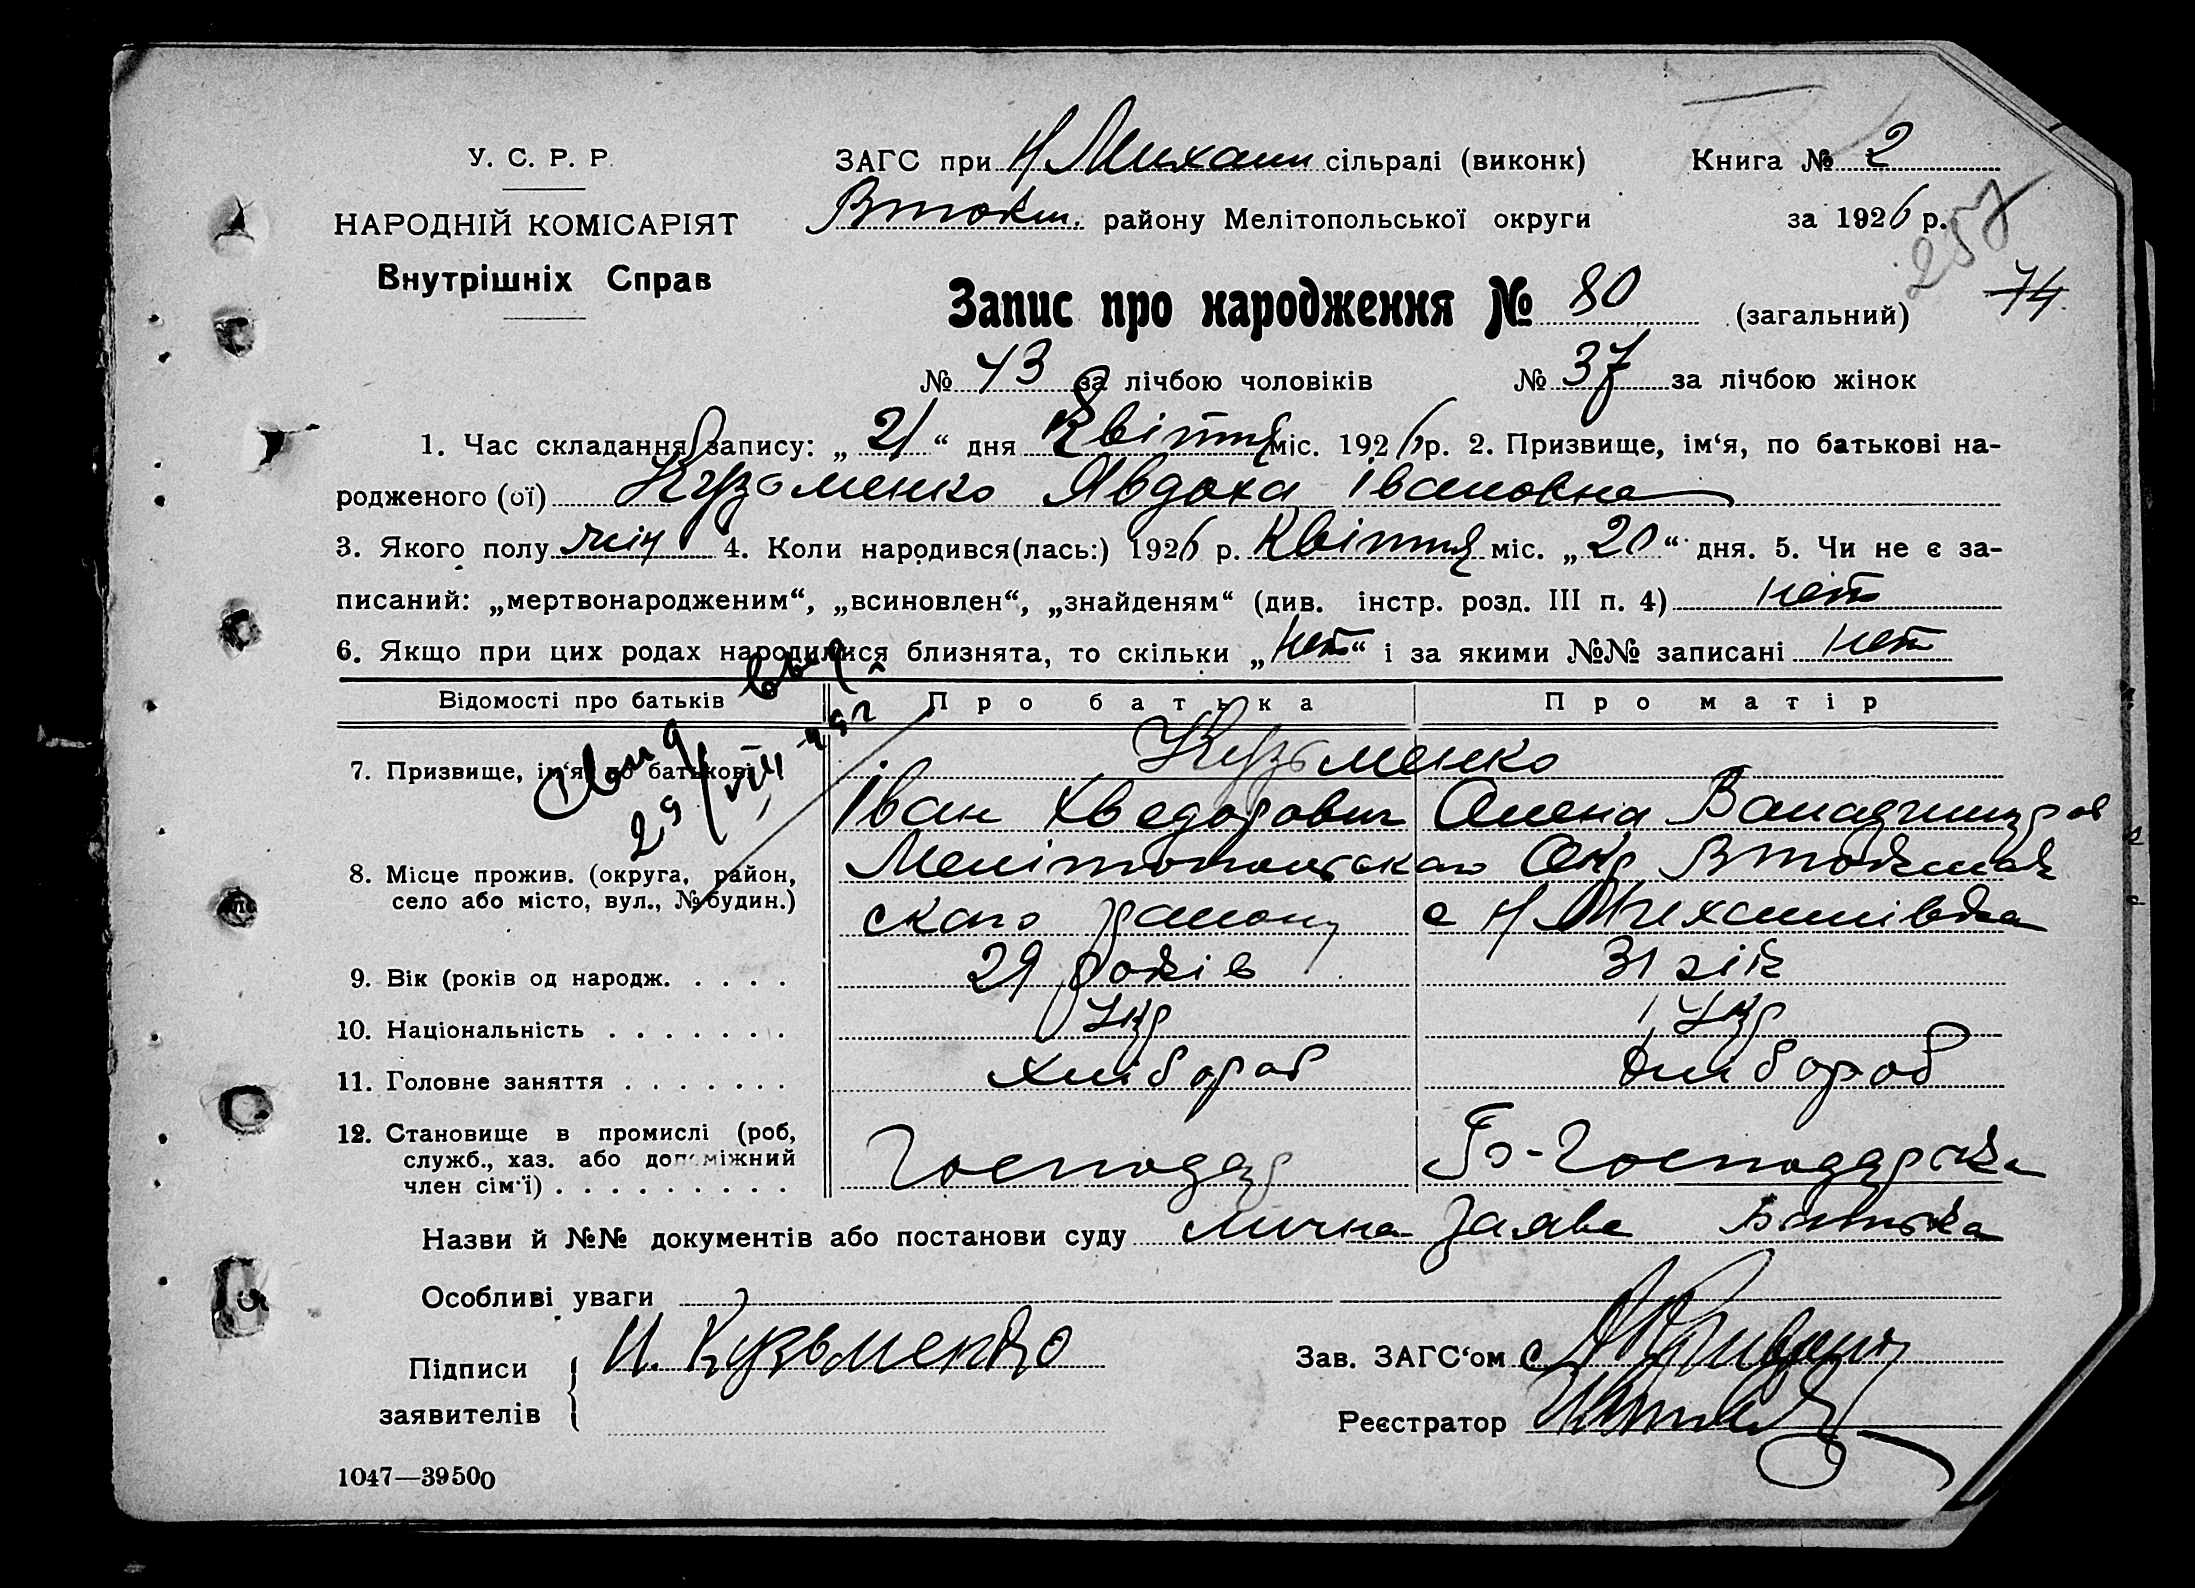 У. С. Р. Р.
НАРОДНІЙ КОМІСАРІЯТ
Внутрішніх Справ
ЗАГС при Н Михайл сільраді (виконк)
Втокм. району Мелітопольської округи
Книга № 2
за 1926 р.
257
74
Запис про народження № 80 (загальний)
№ 43 за лічбою чоловіків № 37 за лічбою жінок
1. Час складання запису: „ 21 “ дня Квітня міс. 1926 р. 2. Призвище, ім‘я, по батькові на-
родженого (ої) Кузьменко Явдоха Івановна
3. Якого полу жін 4. Коли народився(лась:) 1926 р. Квітня міс. „ 20 “ дня. 5. Чи не є за-
писаний: „мертвонародженим“, „всиновлен“, „знайденям“ (див. інстр. розд. III п. 4) нет
6. Якщо при цих родах народилися близнята, то скільки „ нет “ і за якими №№ записані нет
Відомості про батьків Про батька Про матір
7. Призвище, ім‘я, по батькові Кузьменко
Іван Хведорович Олена
8. Місце прожив. (округа, район, Мелітопольскаго Окр Втокмак
село або місто, вул., № будин.) скаго району с Н Михайлівка
9. Вік (років од народж. . . . . 29 років 31 рік
10. Національність . . . . . . . Укр Укр
11. Головне заняття . . . . . . . Хлібороб Хлібороб
12. Становище в промислі (роб,
служб., хаз. або допоміжний Господар Господарька
член сім‘ї) . . . . . . . . .
Назви й №№ документів або постанови суду лична заява Батька
Особливі уваги
Підписи И. Кузьменко
заявителів
Зав. ЗАГС‘ом
Реєстратор
1047—39500